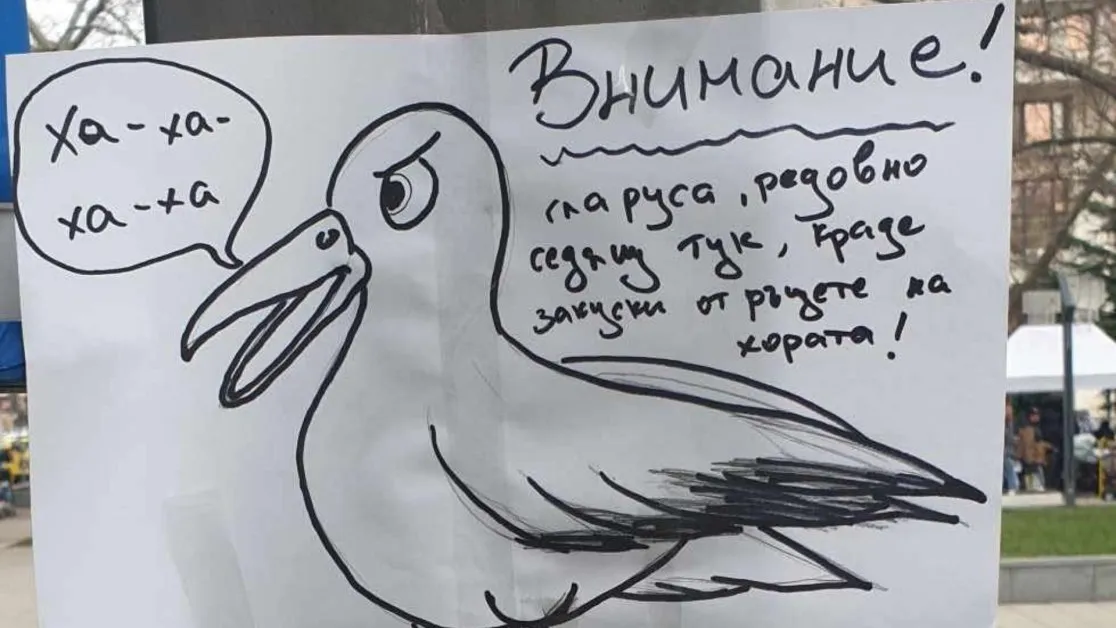 Ха-ха-
ха-ха
Внимание!
гларуса, редовно
седящ тук, краде
закуски от ръцете на
хората!